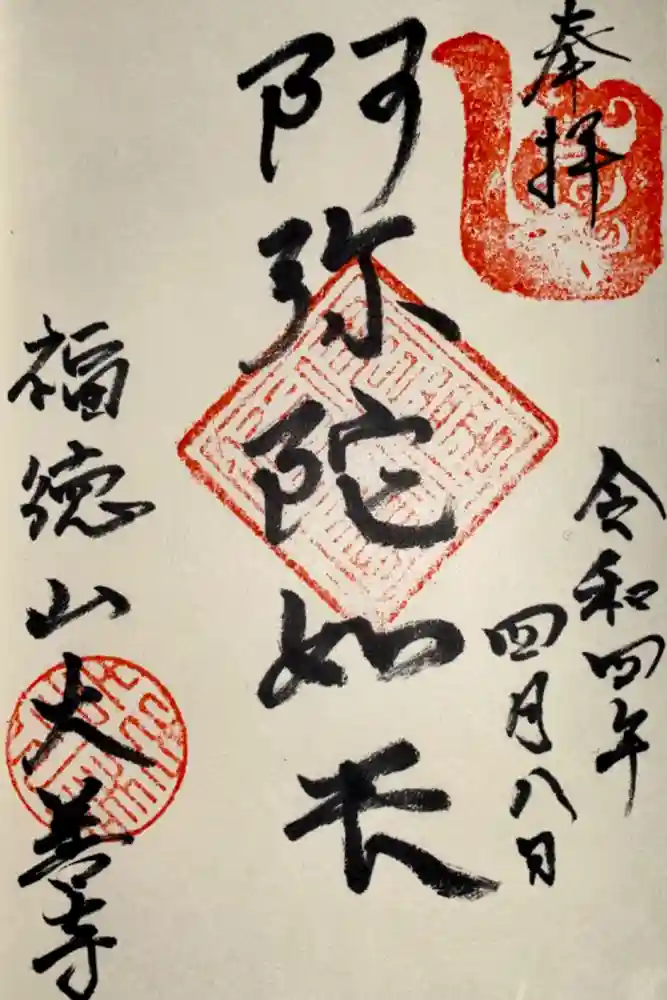 奉拝
令和四年
四月八日
阿弥陀如来
福徳山大善寺